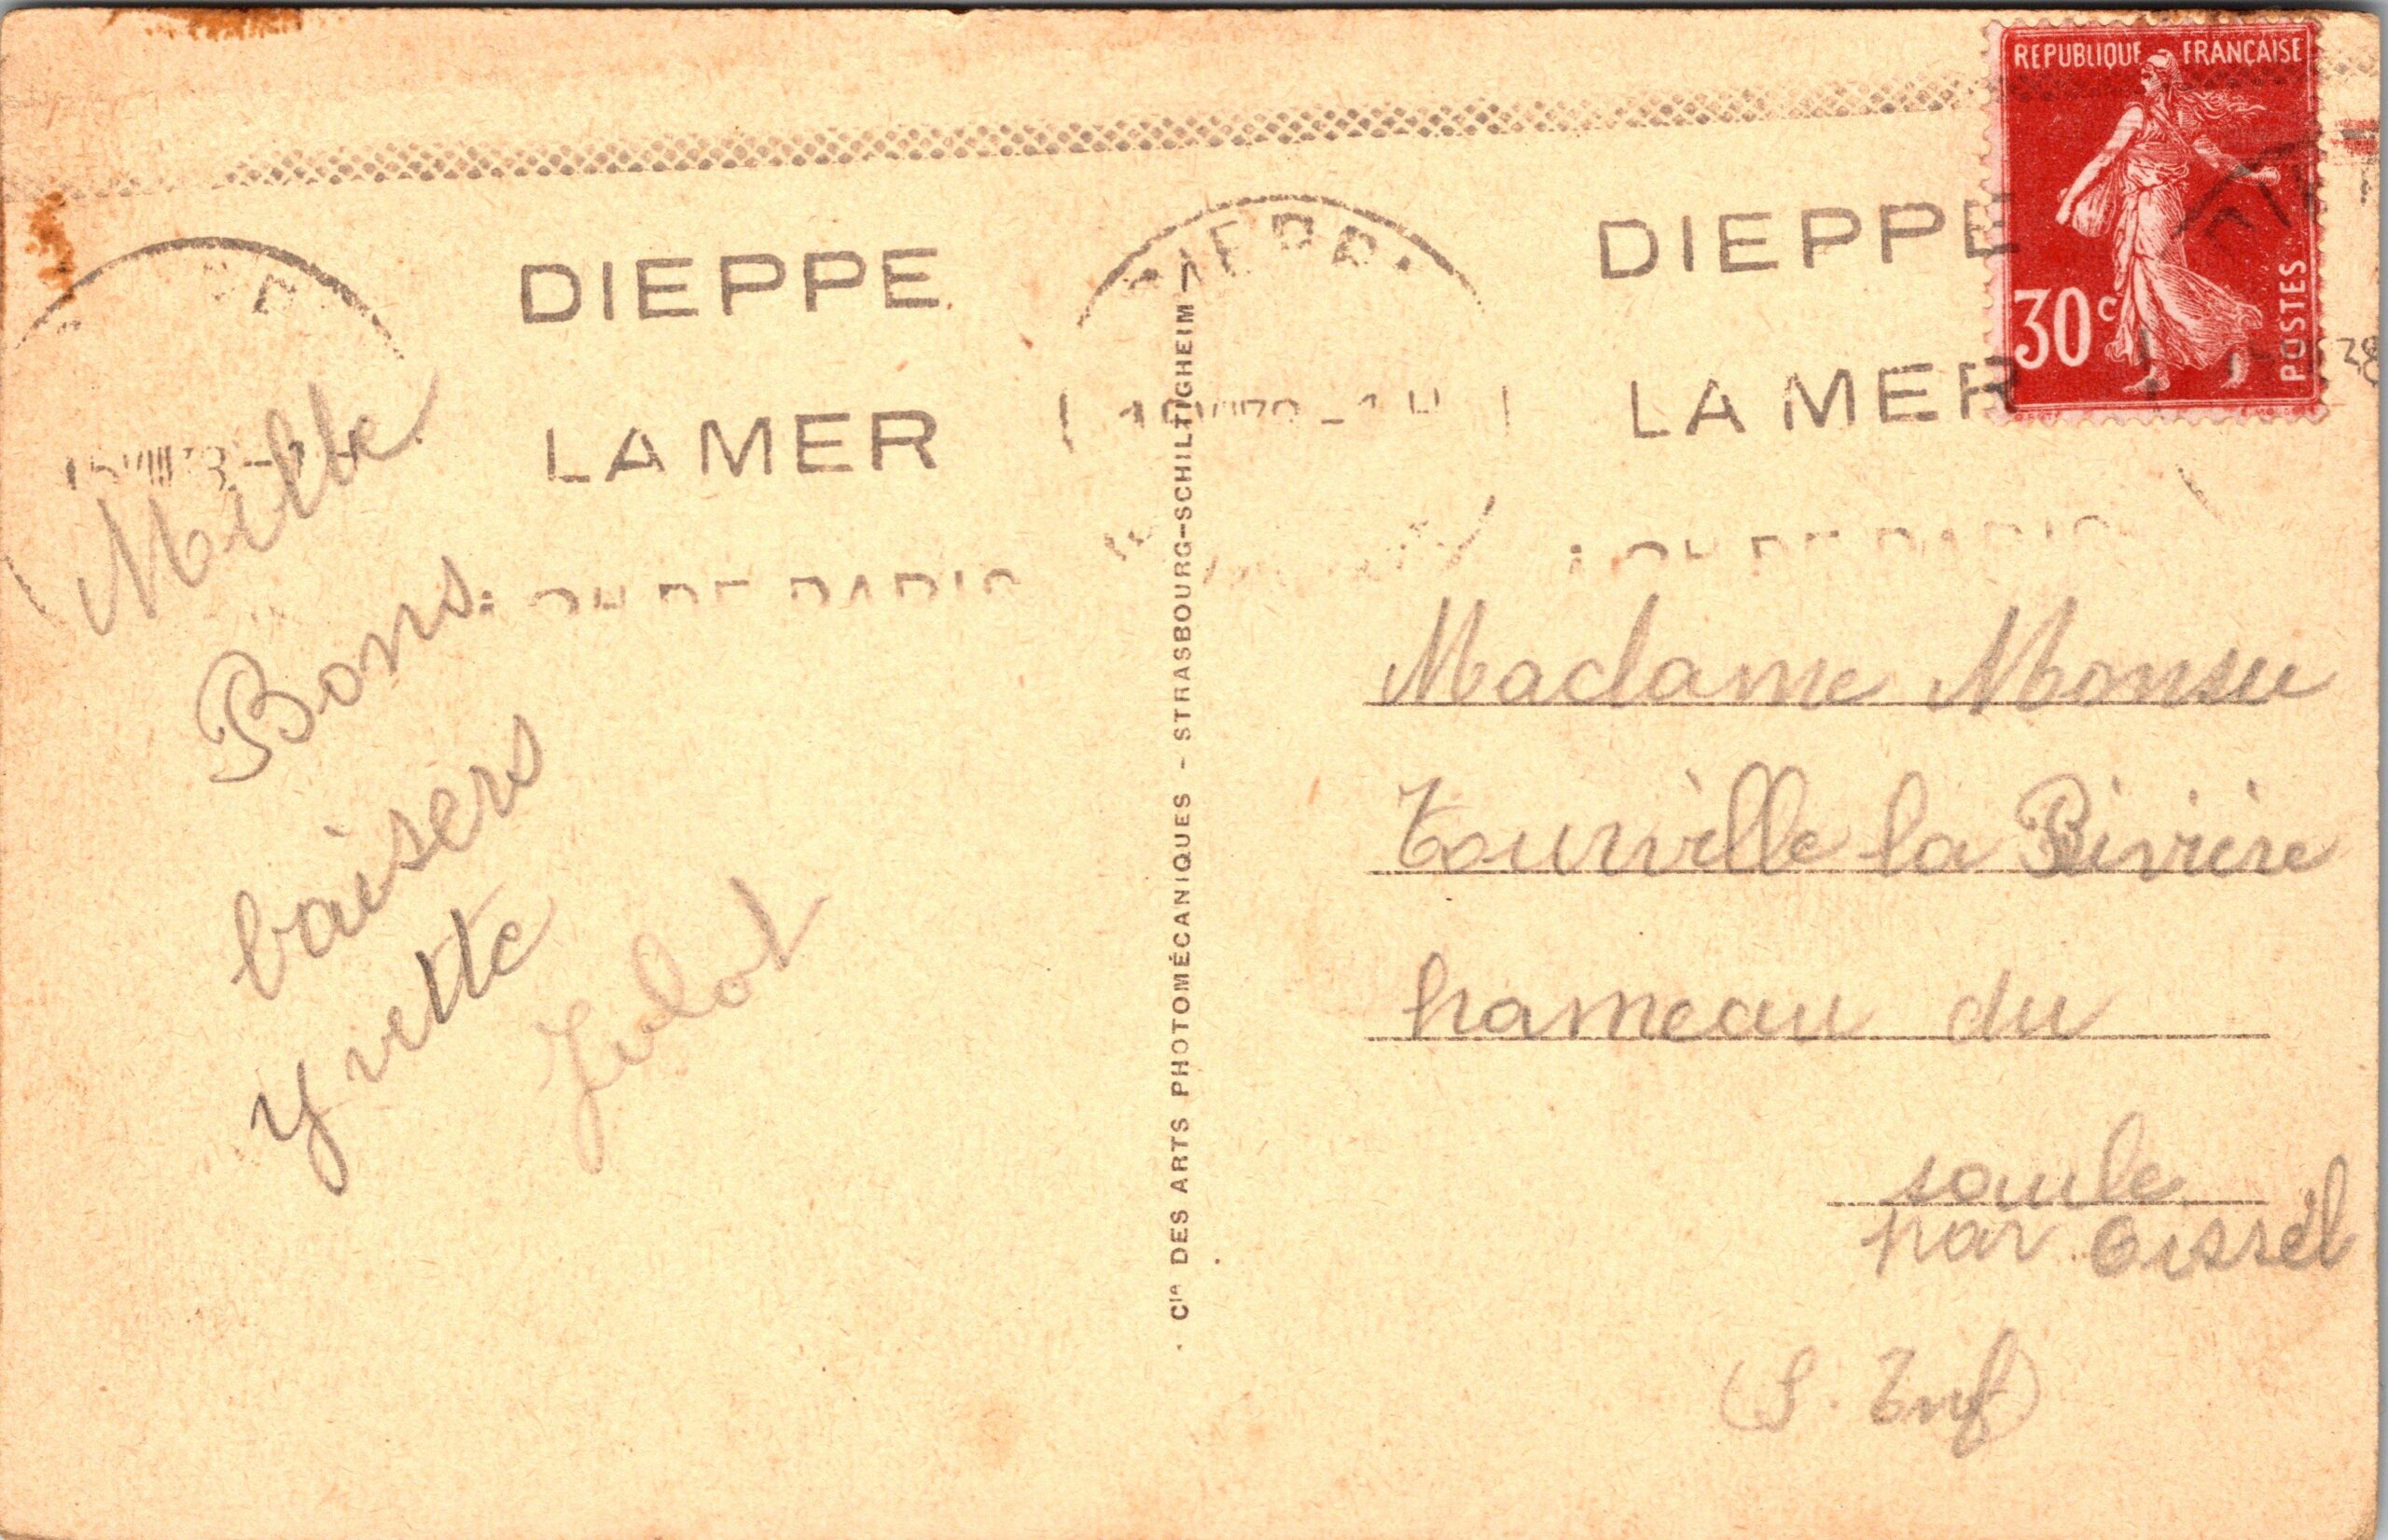 REPUBLIQUE FRANÇAISE
30c
POSTES
DIEPPE
LA MER
DE PARIS
DIEPPE
LA MER
DE PARIS
38
Mille
Bons
baisers
yvette
Julot
Cie DES ARTS PHOTOMÉCANIQUES - STRASBOURG-SCHILTIGHEIM
Madame Monsu
Tourville la Rivière
hameau du
saule
par Oissel
(S. Inf)